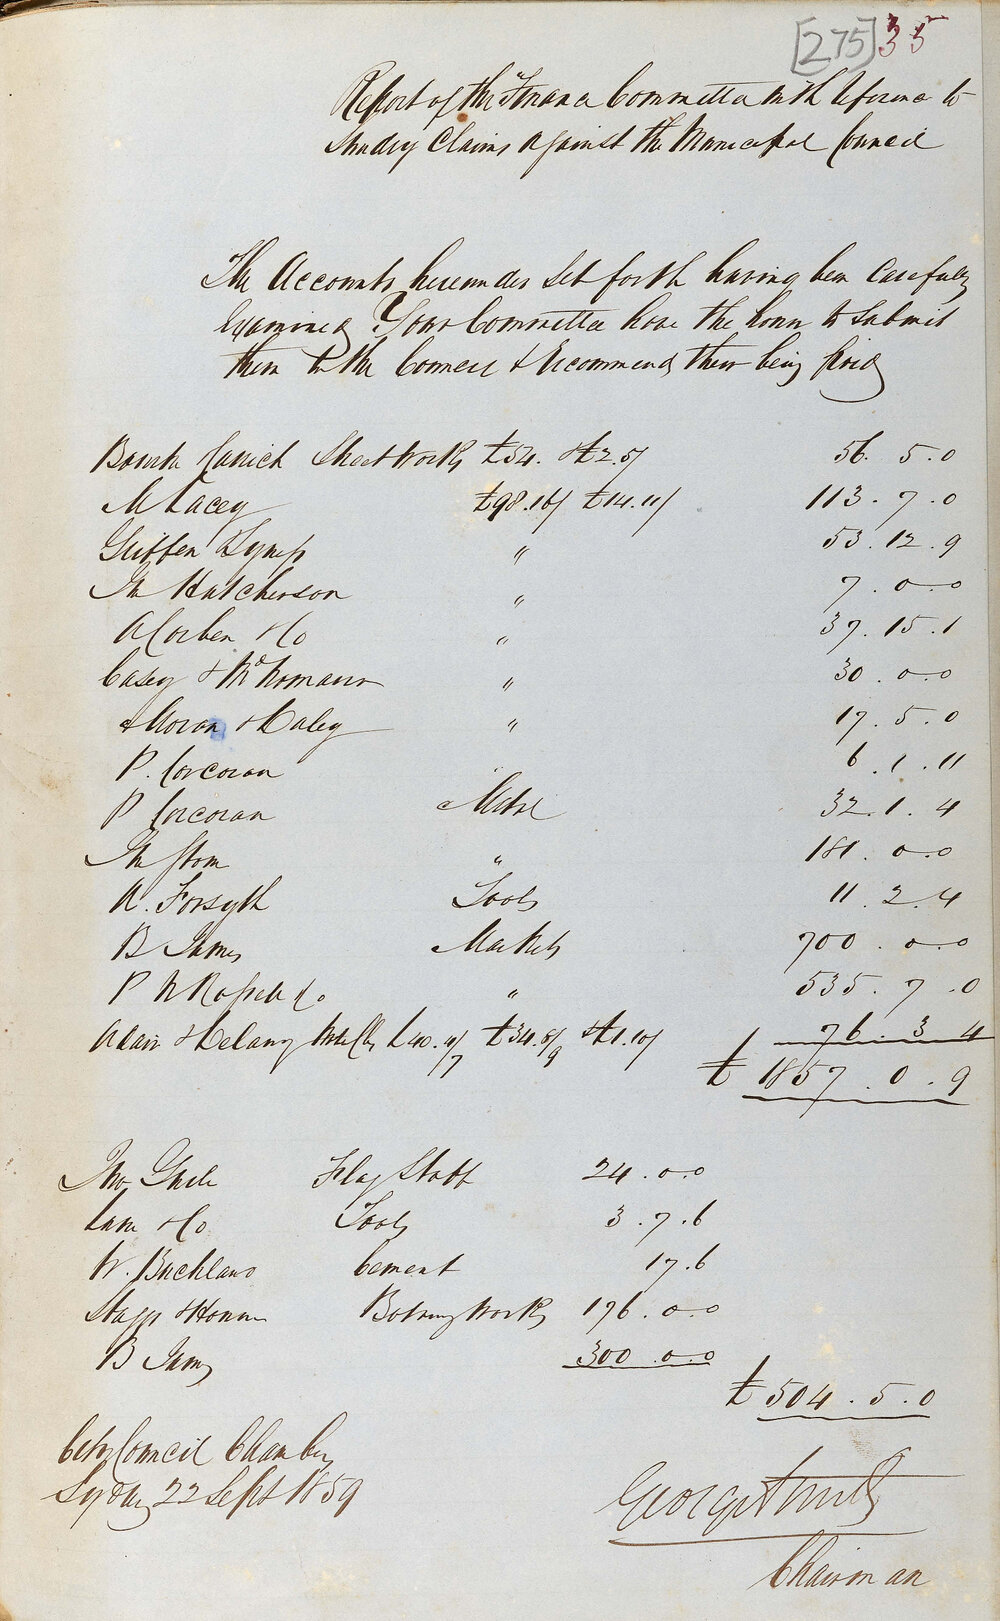 [275] 35
Report of the Finance Committee with reference to
Sundry Claims against the Municipal Council
The Accounts hereunder set forth having been Carefully
Examined Your Committee have the honor to Submit
them to the Council & Recommend their being paid
Bourke Street Work £54. & £2.5/ 56. 5. 0
M Lacey £98.16/ £14.11/ 113. 7. 0
Griffen & Lynch " 53. 12. 9
Jn Hutcherson " 7. 0. 0
A Corben & Co " 37. 15. 1
Casey & McNamara " 30. 0. 0
Moran & Daley " 17. 5. 0
P. Corcoran 6. 1. 11
P Corcoran Metal 32. 1. 4
Jn Strom " 181. 0. 0
A. Forsyth Tools 11. 2. 4
B James Markets 700. 0. 0
P N Russell & Co " 535. 7. 0
Adair & Delany £40. 4/7 £34. 8/9 & £1. 10/ 76. 3. 4
£ 1857. 0. 9
Thos Flag Staff 24. 0. 0
Lane & Co Tools 3. 7. 6
W. Buckland Cement 17. 6
Stagg & Botany Works 176. 0. 0
B James 300. 0. 0
£ 504. 5. 0
City Council Chamber
Sydney 22 Sept 1859
George Smith
Chairman